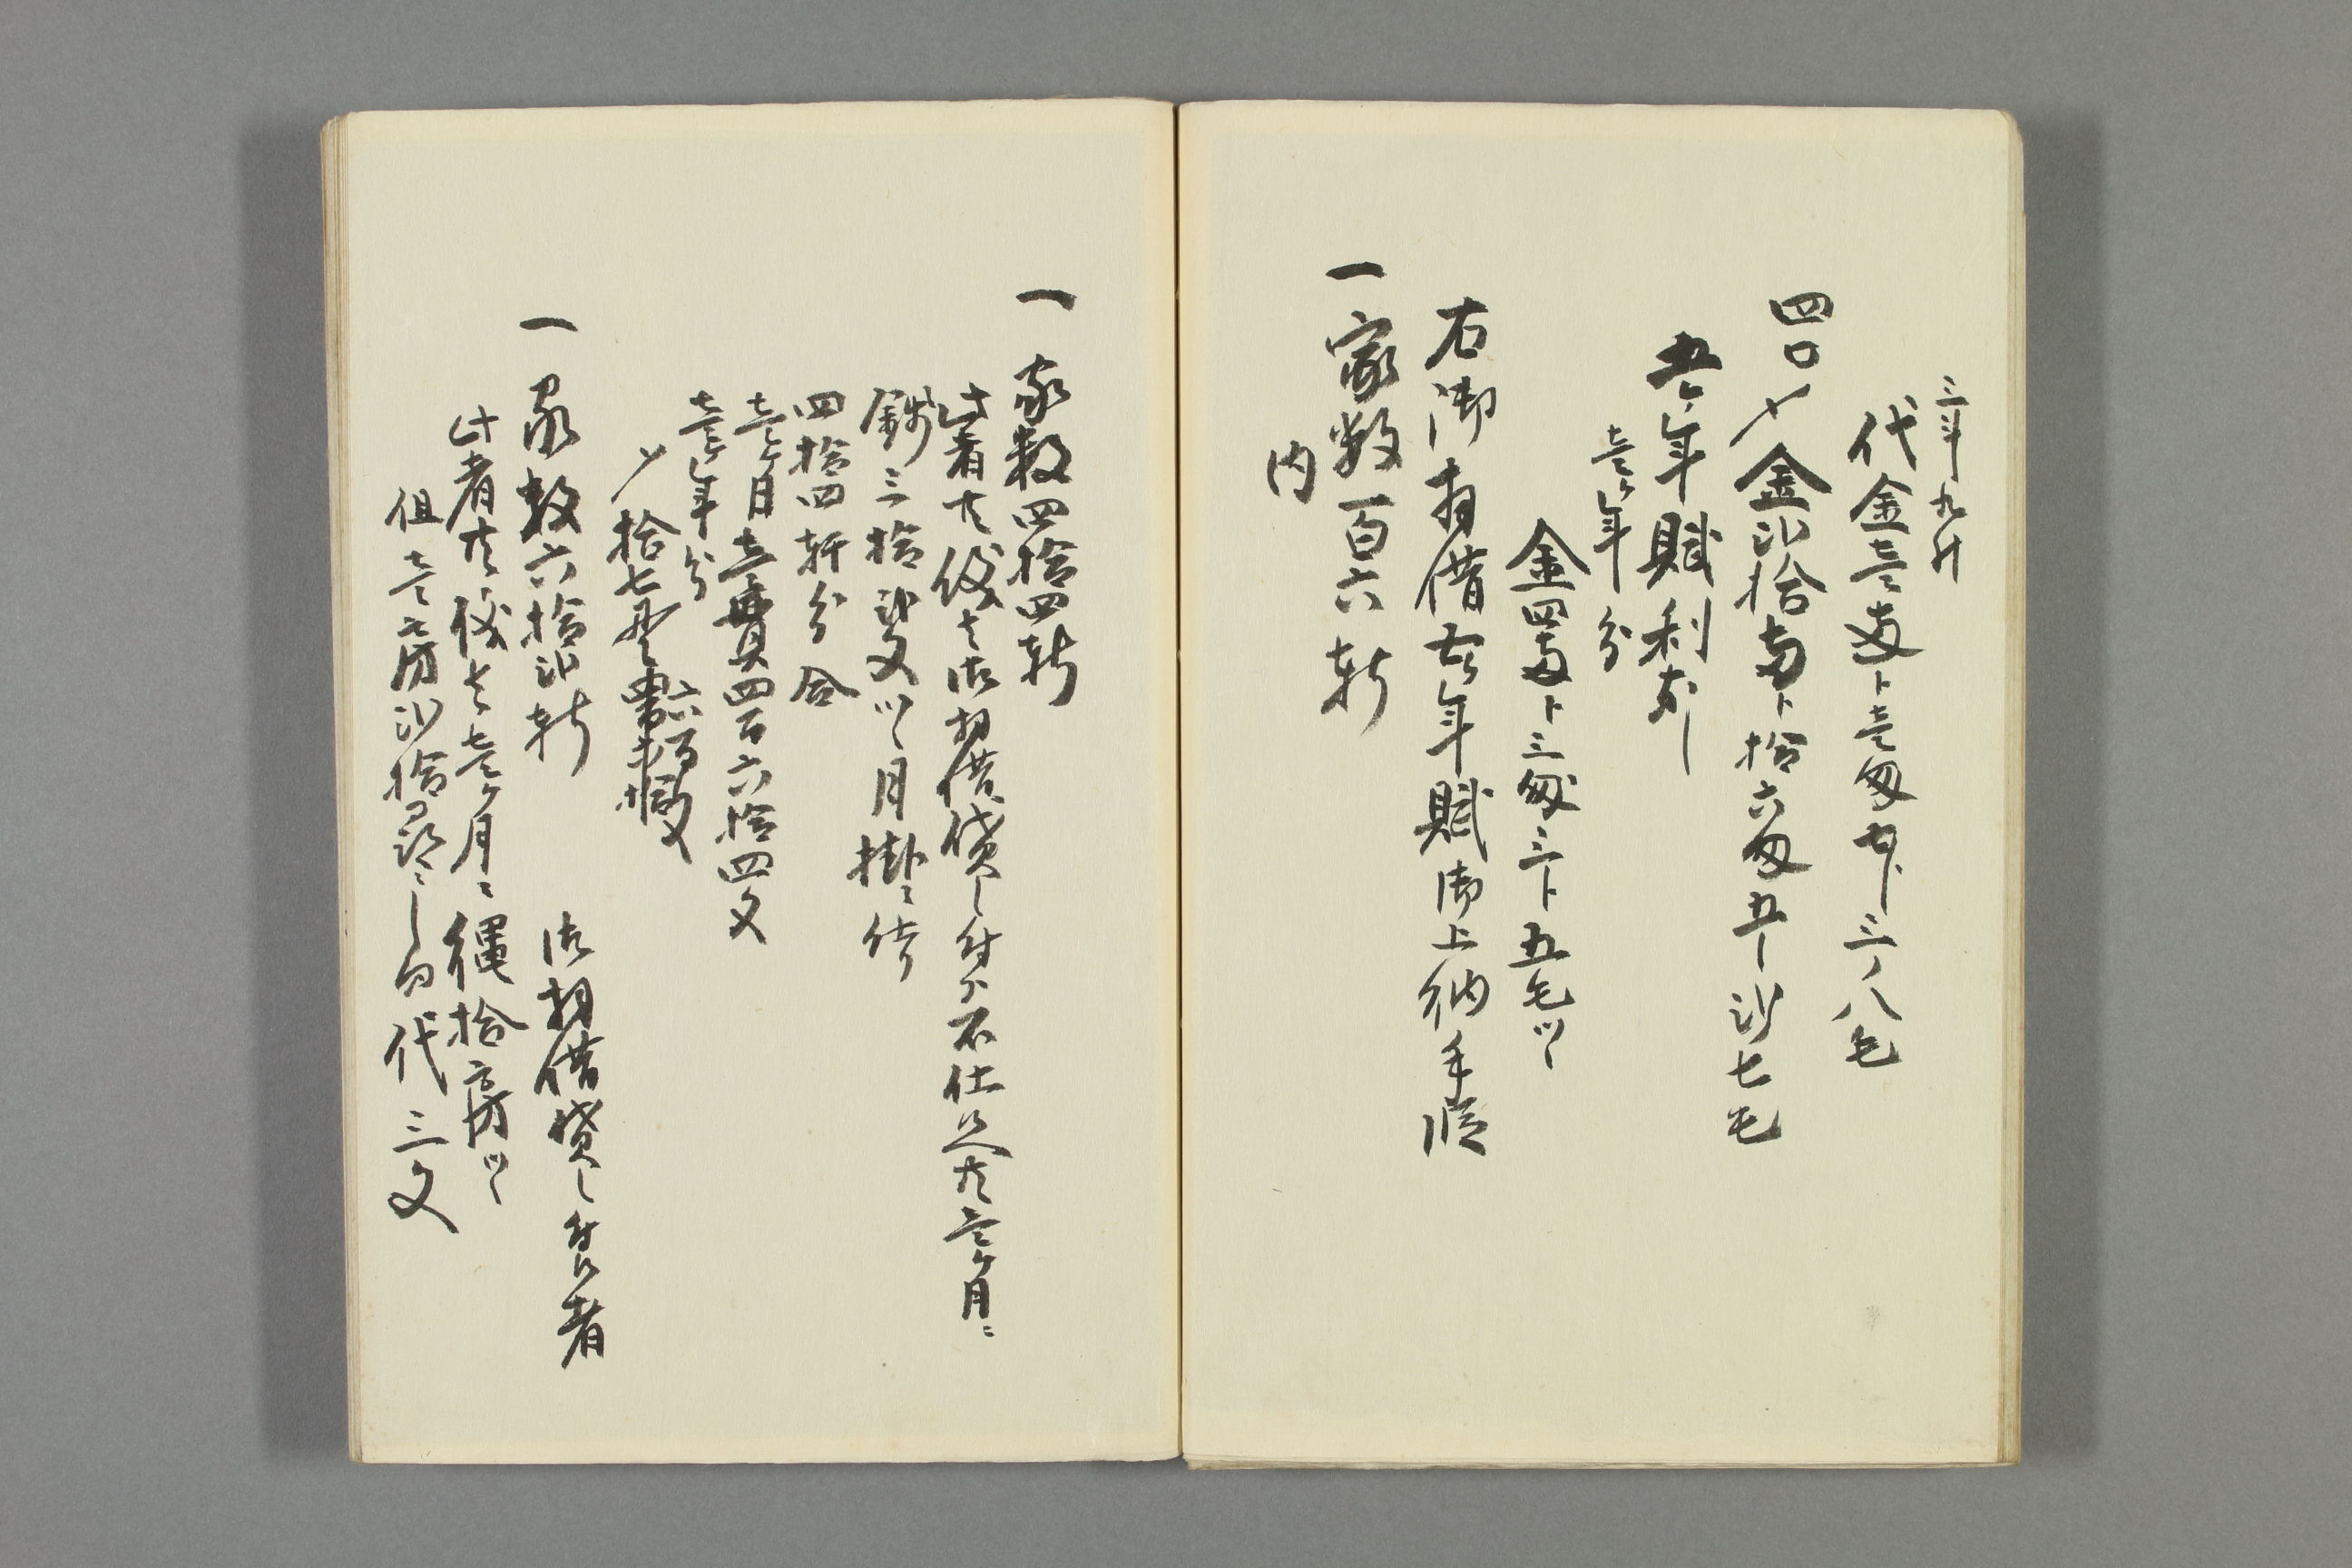 三斗九升
代金壱両ト壱匁七分三リ八毛
四口〆金弐拾両ト拾六匁五分弐リ七毛
五ケ年賦利なし
壱ケ年分
金四両ト三匁三分五毛ツヽ
右御拝借五ケ年賦御上納手段
一家数百六軒
内
一家数四拾四軒
此者共儀者御拝借貸し付ハ不仕候へ共壱ケ月ニ
銭三拾弐文ツヽ月掛ニ仕
四拾四軒分合
壱ケ月壱貫四百六拾四文
壱ケ年分
〆拾七貫六百文
一家数六拾弐軒
御拝借貸し付候者
此者共儀者壱ケ月ニ縄拾房ツヽ
但壱房弐拾尋之し向代三文